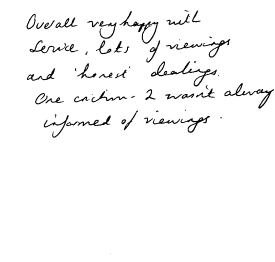 Overall very happy with
service, lots of viewings
and 'honest' dealings.
One critism - I wasn't always
informed of viewings.